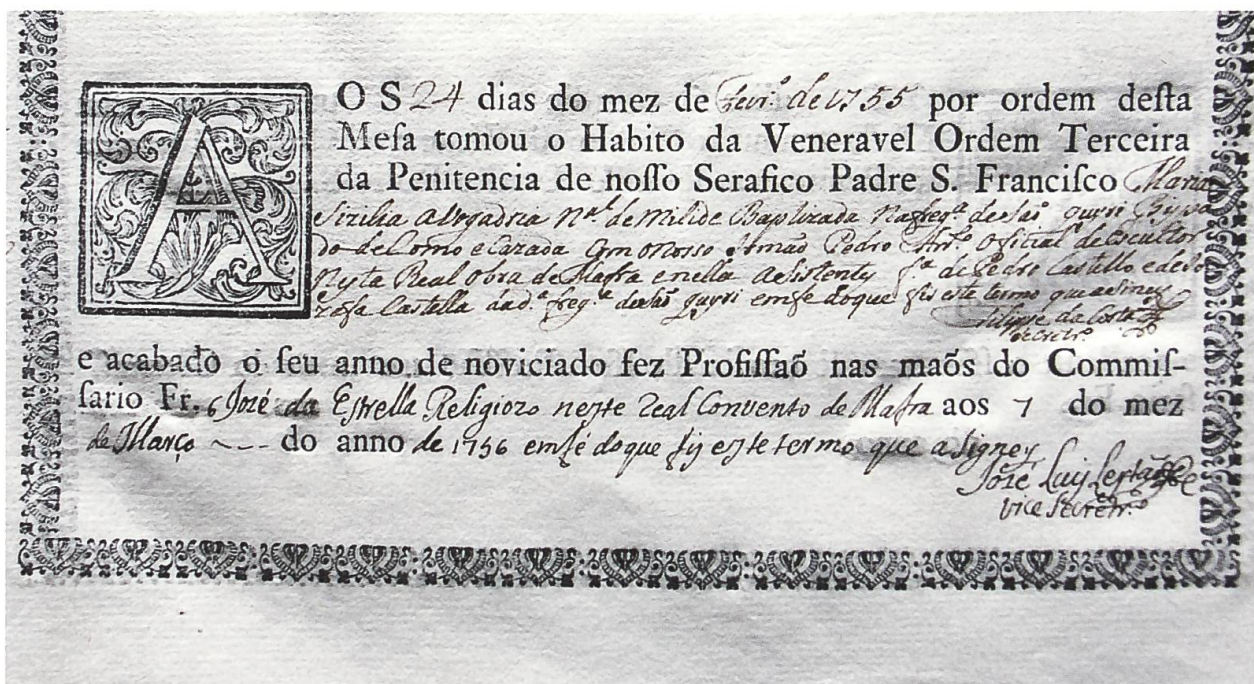 AOS 24 dias do mez de Fevr.º de 1755 por ordem desta
Mesa tomou o Habito da Veneravel Ordem Terceira
da Penitencia de nosso Serafico Padre S. Francisco Maria
Sizilia Abrgadria N.al de Milide Baptizada Na freg.ª de
do de Como e Cazada Com o Nosso Irmão Pedro Off.icial de Escultor
Nesta Real Obra de Mafra e nella Asistente f.ª de Pedro Castello e de
Castella da d.ª freg.ª de em fe do que fis este termo que asiney
Felippe da Costa
Secretr.º
e acabado o seu anno de noviciado fez Profissaõ nas maõs do Commis-
sario Fr. Jozé da Estrella Religiozo neste Real Convento de Mafra aos 7 do mez
de Março do anno de 1756 em fé do que fij este termo que asigney
Jozé Luiz
vice Secretr.º